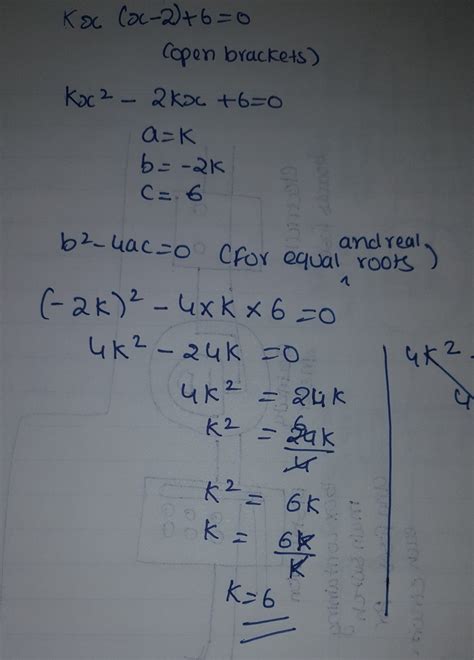 Kx (x-2)+6=0
(open brackets)
Kx² - 2Kx +6=0
a=K
b= -2K
c= 6
b²-4ac=0 (for equal and real roots)
(-2K)² - 4×K×6 =0
4K² - 24K =0
4K² = 24K
K² = 24K/4 6
K² = 6K
K = 6K/K
K=6
4K² -
4